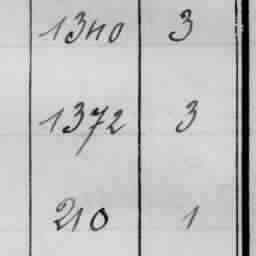 1340 3
1372 3
210 1